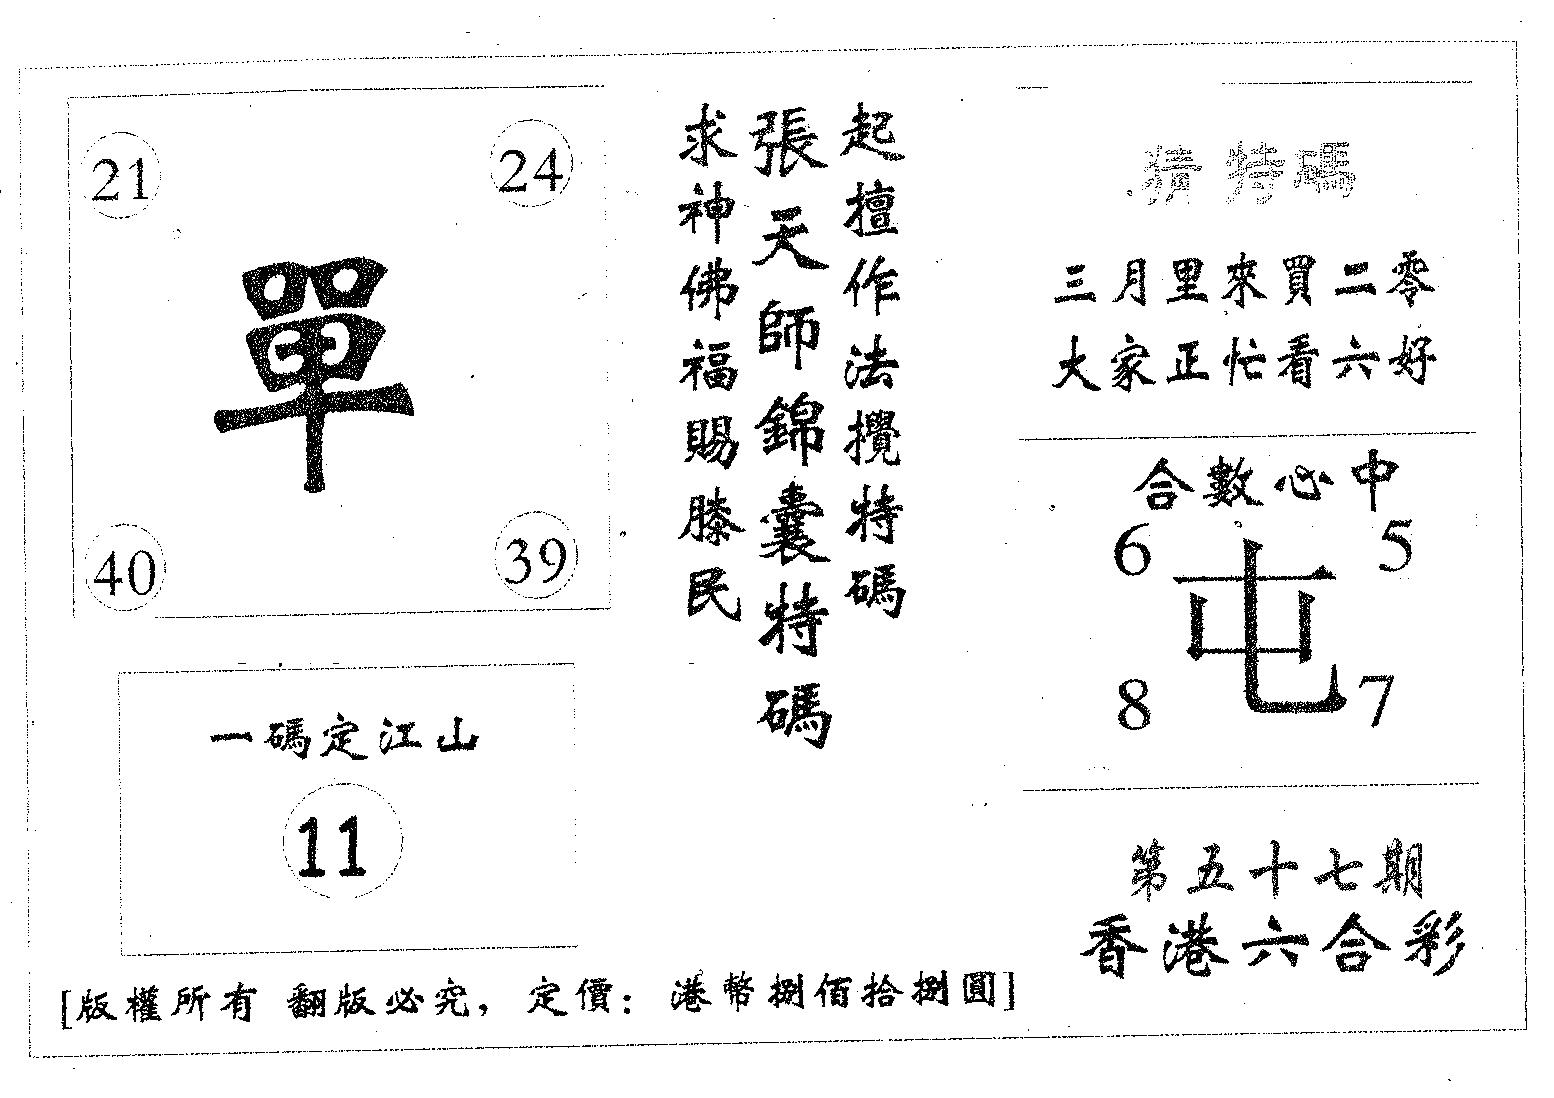 21
24
單
40
39
一碼定江山
11
起擅作法攪特碼
張天師錦囊特碼
求神佛福賜滕民
猜特碼
三月里來買二零
大家正忙看六好
合數必中
6
5
屯
8
7
第五十七期
香港六合彩
[版權所有 翻版必究，定價：港幣捌佰拾捌圓]